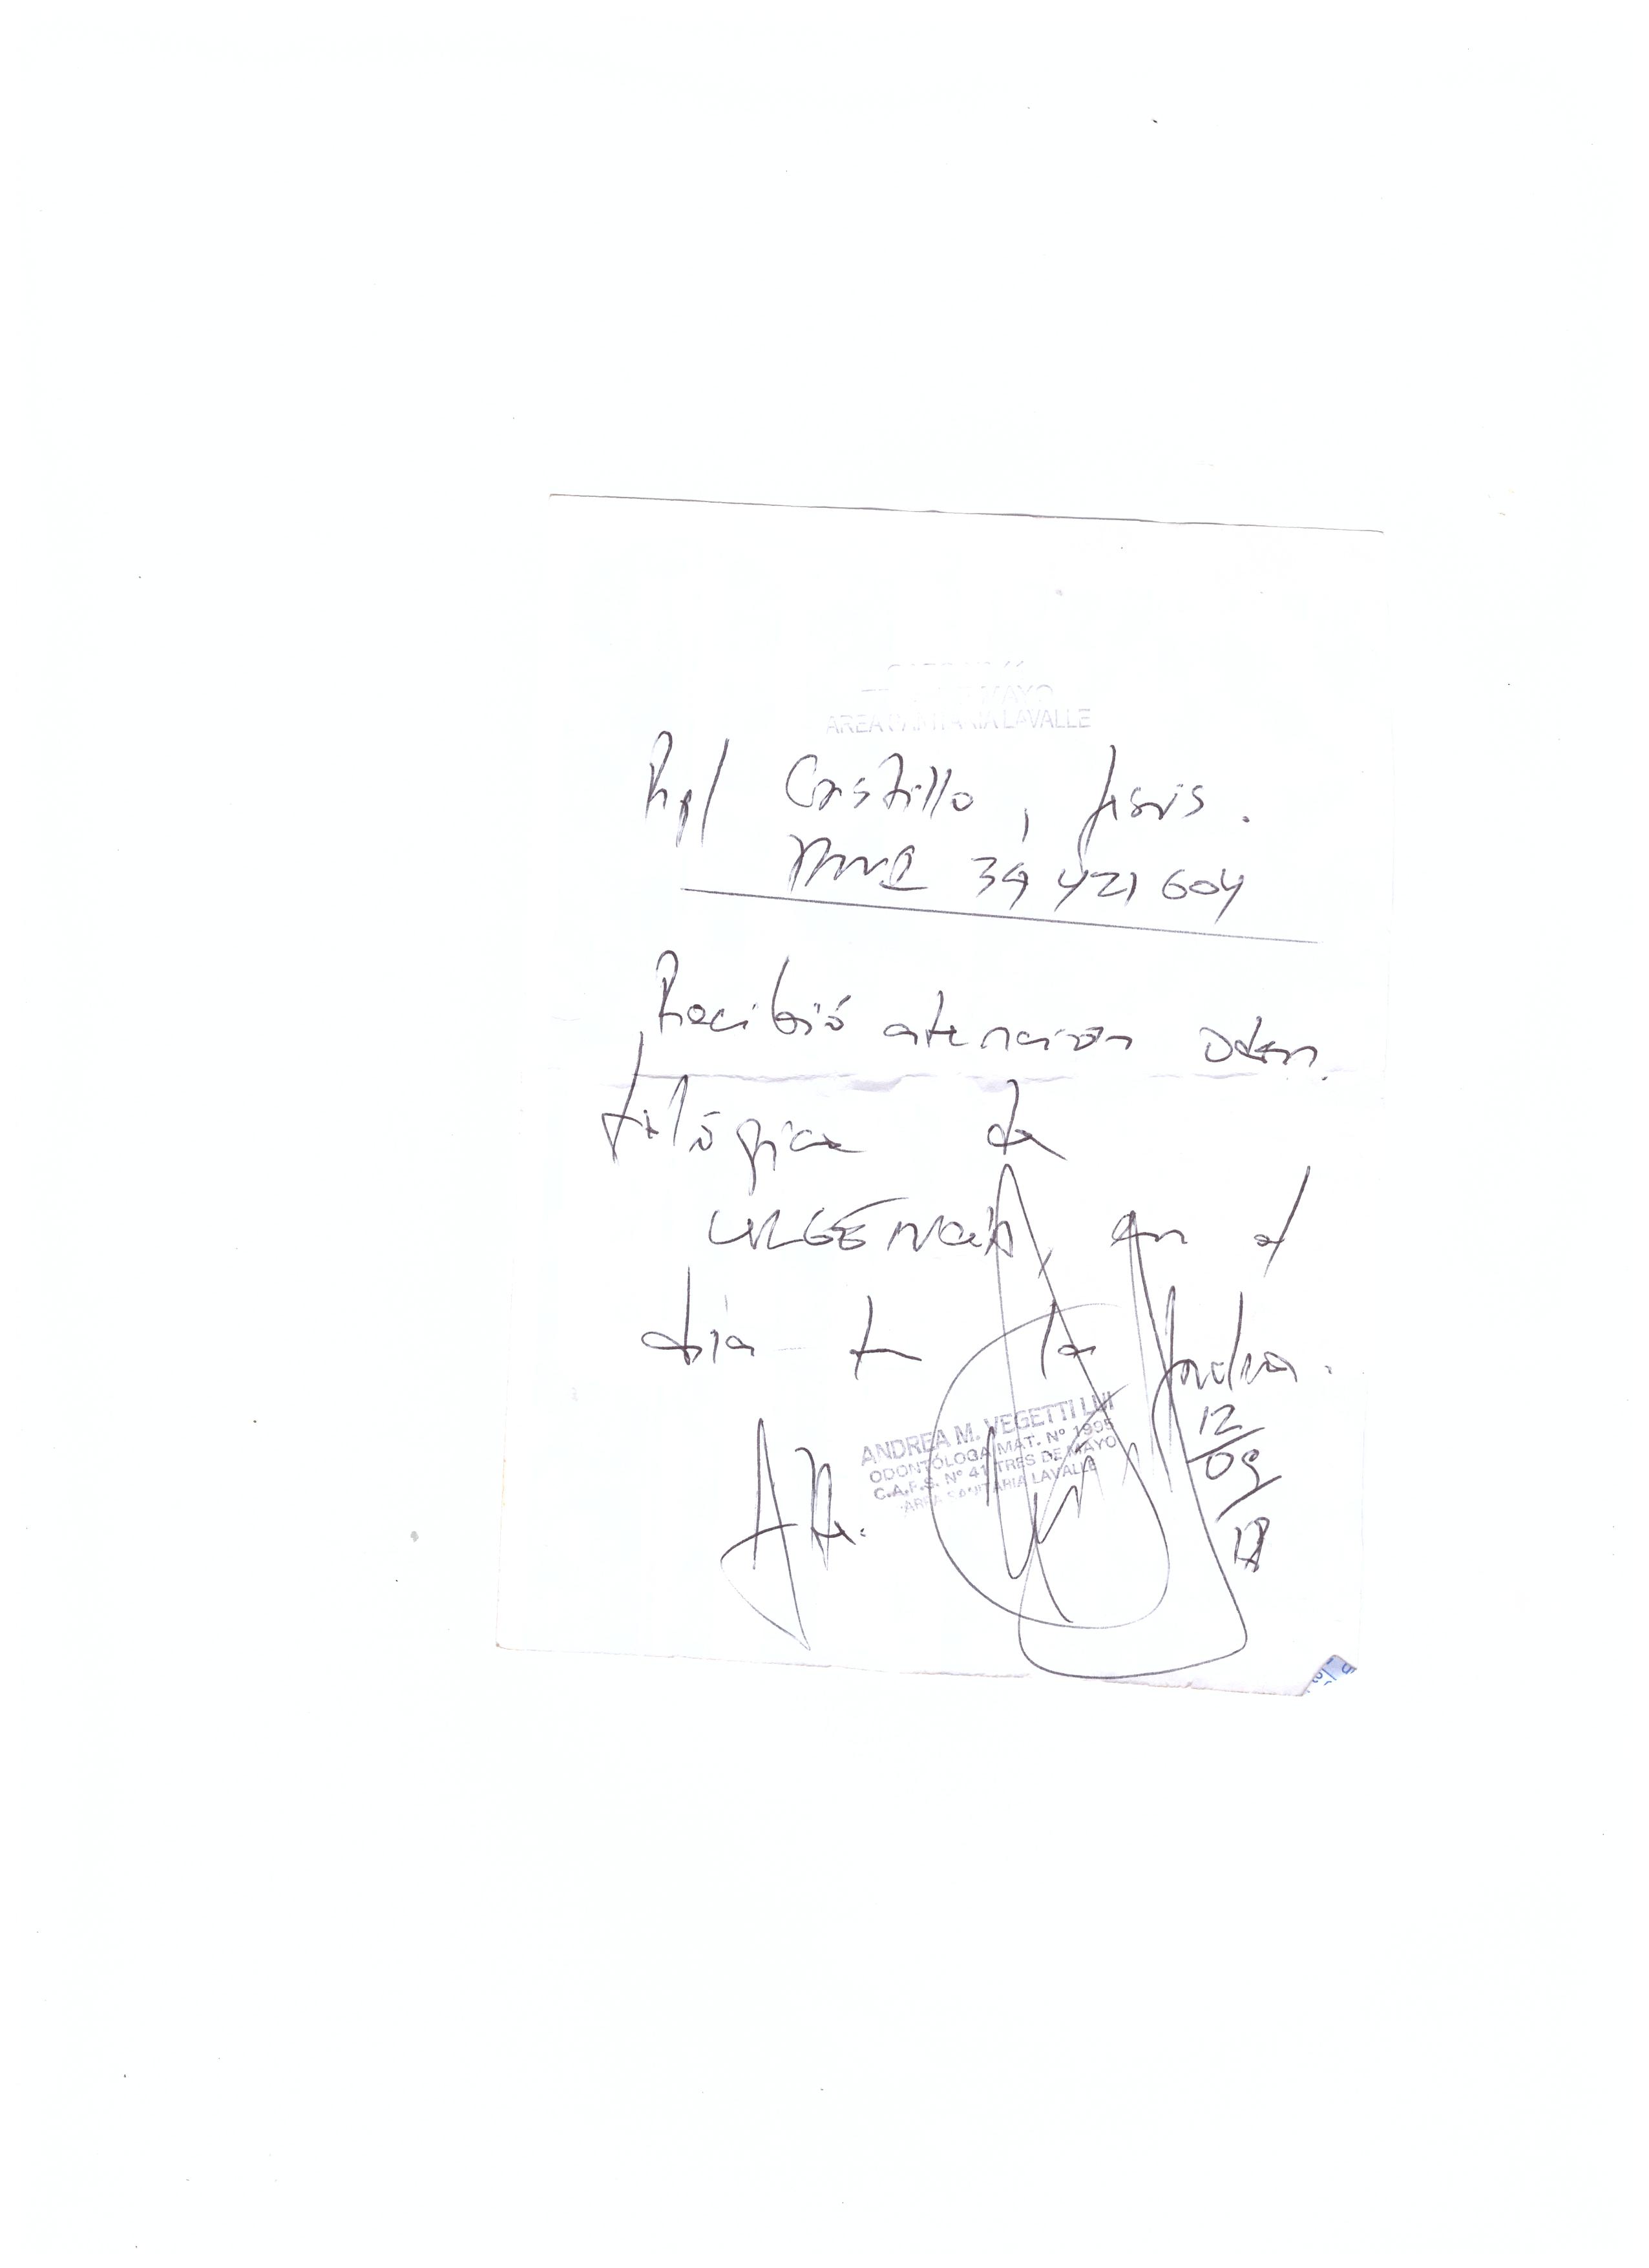 MAYO
AREA SANITARIA LAVALLE
Rp/ Castillo, Jesús.
DNI 39 421 604
Recibió atención odon
tológica de
URGENCIA, en el
día de la fecha.
12/09/18
Atte.
ANDREA M. VEGETTI LUI
ODONTÓLOGA MAT. Nº 1995
C.A.P.S. Nº 41 TRES DE MAYO
AREA SANITARIA LAVALLE